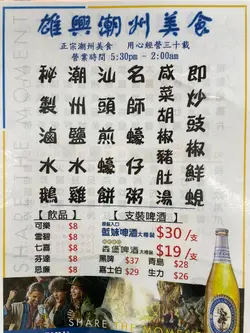 雄興潮州美食
正宗潮州美食 用心經營三十載
營業時間 5:30pm - 2:00am
即炒豉椒鮮蜆
咸菜胡椒豬肚湯
名師蠔仔粥
汕頭蠔餅
潮州煎蠔
秘製鹵水鵝
【飲品】
可樂 $8
雪碧 $8
七喜 $8
芬達 $8
忌廉 $8
【支裝啤酒】
原裝入口
藍妹啤酒大樽裝 $30/支
森堡啤酒大樽裝 $19/支
黑牌 $37 青島 $28
嘉士伯 $29 生力 $26
SHARE THE MOMENT
SHARE THE